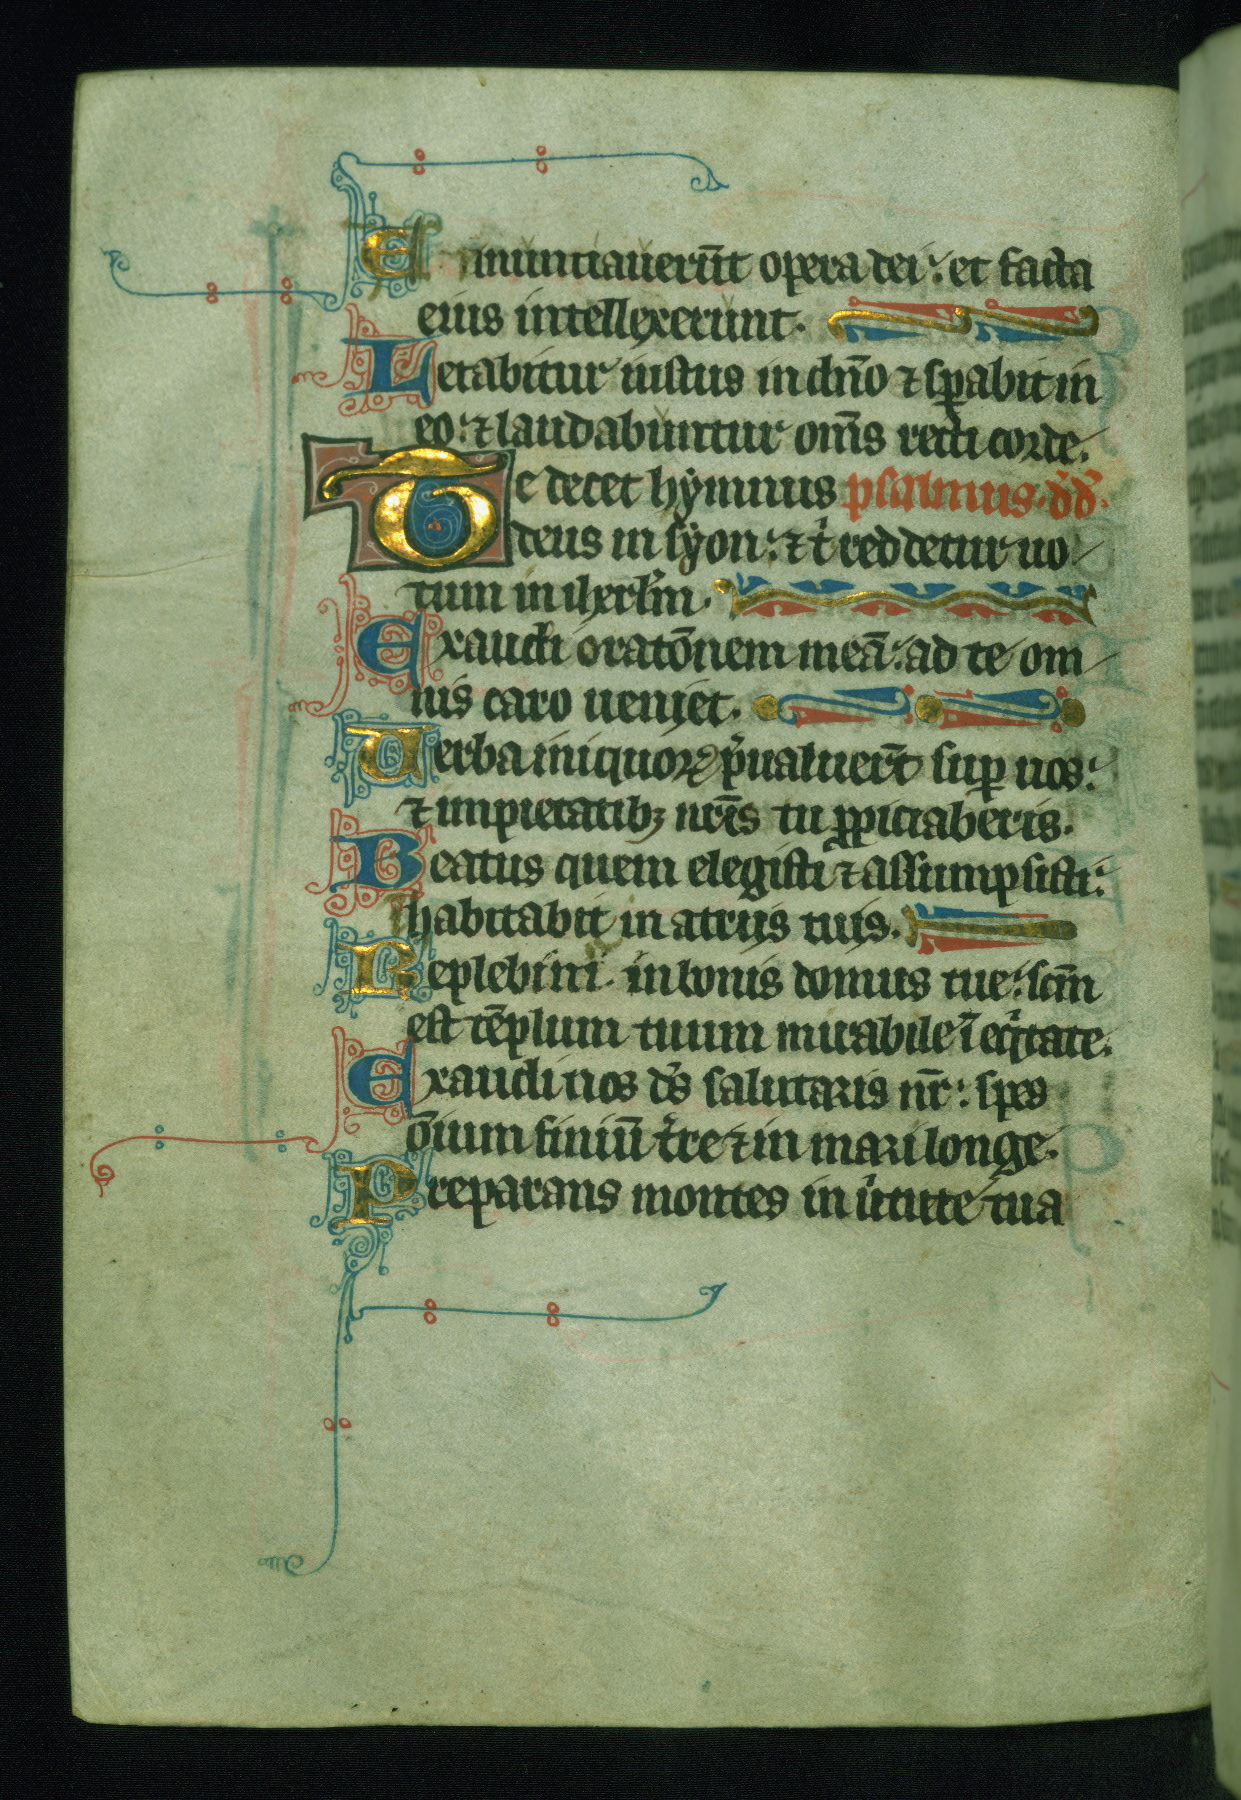 Et annunciauerūt opera dei : et facta
eius intellexerunt .
Letabitur iustus in dn̄o ⁊ sꝑabit in
eo : ⁊ laudabuntur om̄s recti corde .
Te decet hẏmnus psalmus . dd̄ .
deus in sẏon : ⁊ tͥ reddetur uo
tum in iherlm̄ .
Exaudi oratōnem meā : ad te om
nis caro ueniet .
Uerba iniquoꝝ p̄ualuerūt suꝑ nos :
⁊ impietatibꝫ nr̄is tu ꝓpiciaberis .
Beatus quem elegisti ⁊ assumpsisti :
habitabit in atriis tuis .
Replebim̄ in bonis domus tue : scm̄
est tēplum tuum mirabile ī eqͥtate .
Exaudi nos ds̄ salutaris nr̄ : spes
ōium finiū tr̄re ⁊ in mari longe .
Preparans montes in uͥtute tua